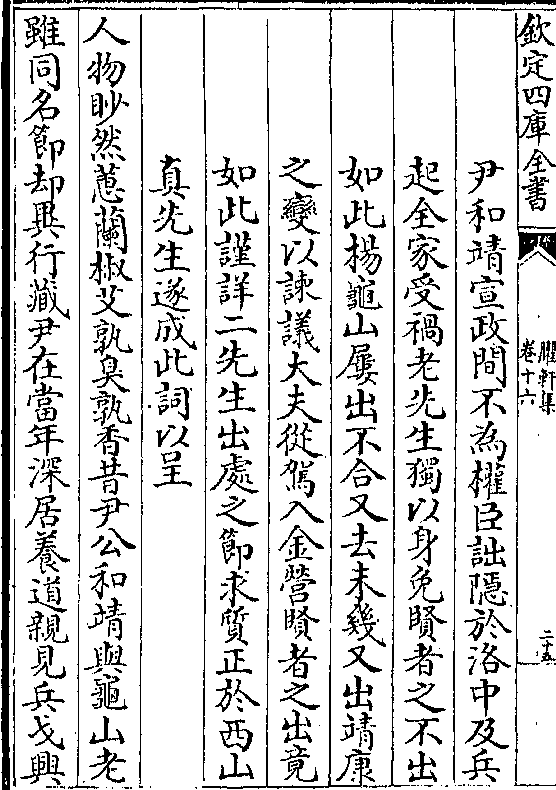 欽定四庫全書
臞軒集
卷十六
二十五
尹和靖宣政間不為權臣詘隠於洛中及兵
起全家受禍老先生獨以身免賢者之不出
如此楊龜山屢出不合又去未幾又出靖康
之變以諫議大夫從駕入金營賢者之出竟
如此謹詳二先生出處之節求質正於西山
真先生遂成此詞以呈
人物眇然蕙蘭椒艾孰臭孰香昔尹公和靖與龜山老
雖同名節却異行藏尹在當年深居養道親見兵戈興